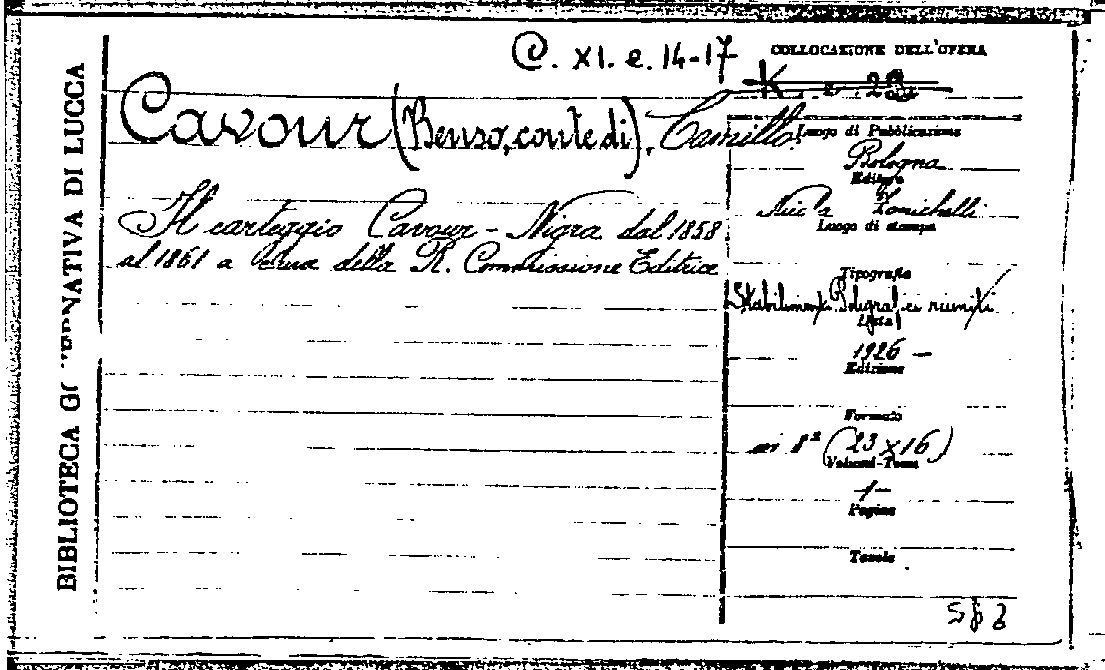 BIBLIOTECA GOVERNATIVA DI LUCCA
C. XI. e. 14-17
COLLOCAZIONE DELL'OPERA
Cavour (Benso, conte di), Camillo.
Il carteggio Cavour - Nigra dal 1858
al 1861 a cura della R. Commissione Editrice
Luogo di Pubblicazione
Bologna
Editore
Nicola Zanichelli
Luogo di stampa
Tipografia
Stabilimenti Poligrafici riuniti
Data
1926 -
Edizione
Formato
in 8º (23 x 16)
Volumi-Tomi
1
Pagine
Tavole